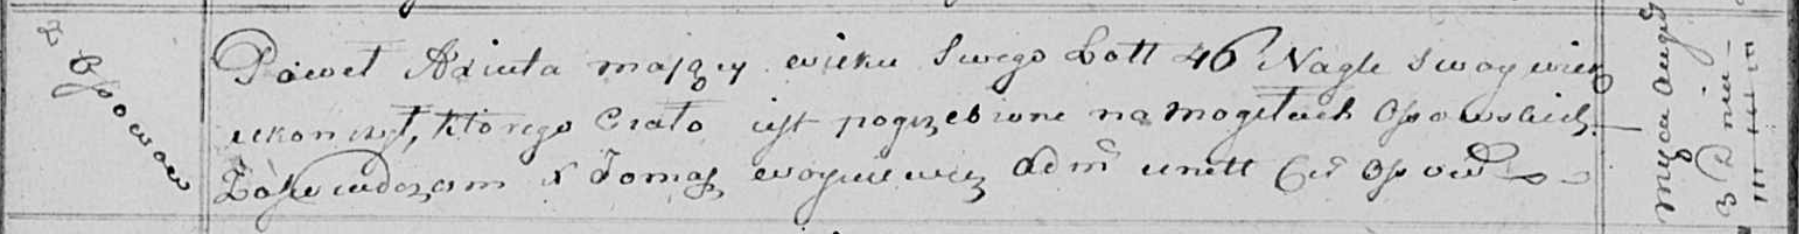 z Osowow
Paweł Axiuta mający wieku Swego Lott 46 Nagle Swoy wiek
ukonczył, ktorego Ciało jest pogrzebione na mogiłach Osowskich
Zaświadczam X Tomasz woyniewicz Adm unitt Osow
Myca Aug
3 Dnia